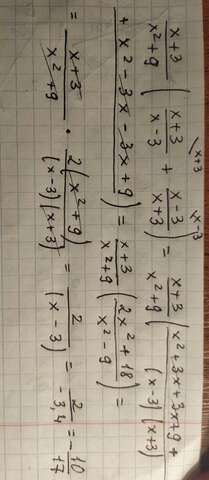 x+3/x²+9 (x+3/x-3 + x-3/x+3) = x+3/x²+9 (x²+3x+3x+9+
+x²-3x-3x+9/(x-3)(x+3)) = x+3/x²+9 (2x²+18/x²-9) =
= x+3/x²+9 · 2(x²+9)/(x-3)(x+3) = 2/(x-3) = 2/-3,4 = -10/17